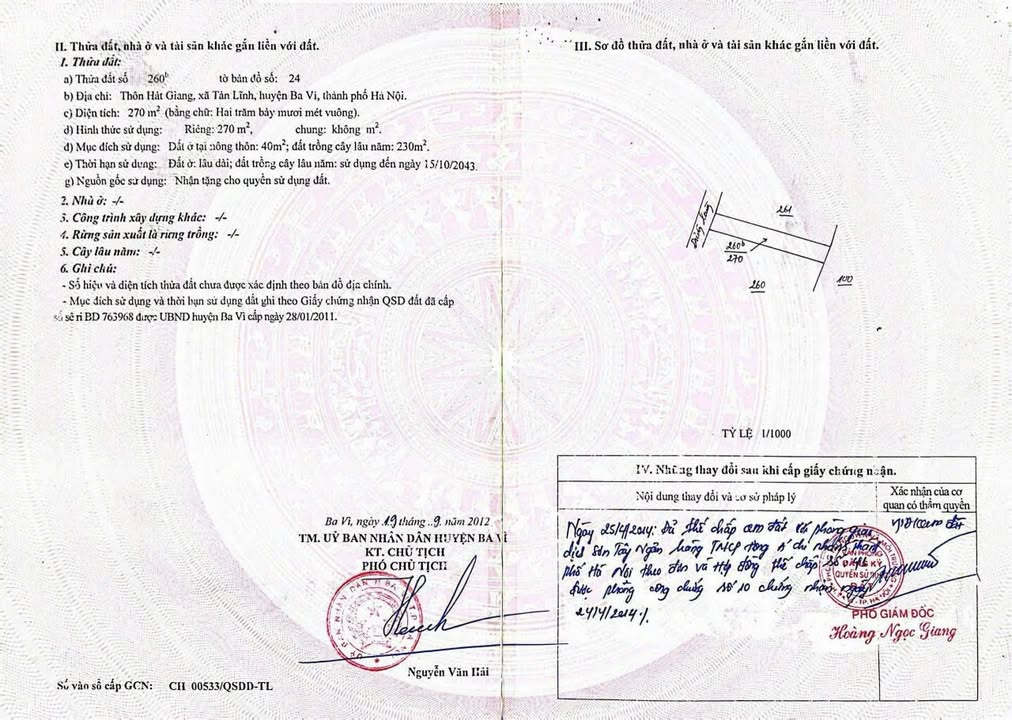 II. Thửa đất, nhà ở và tài sản khác gắn liền với đất.
1. Thửa đất:
a) Thửa đất số 260ᵇ tờ bản đồ số: 24
b) Địa chỉ: Thôn Hát Giang, xã Tản Lĩnh, huyện Ba Vì, thành phố Hà Nội.
c) Diện tích: 270 m² (bằng chữ: Hai trăm bảy mươi mét vuông).
d) Hình thức sử dụng: Riêng: 270 m², chung: không m².
đ) Mục đích sử dụng: Đất ở tại nông thôn: 40m²; đất trồng cây lâu năm: 230m².
e) Thời hạn sử dụng: Đất ở: lâu dài; đất trồng cây lâu năm: sử dụng đến ngày 15/10/2043.
g) Nguồn gốc sử dụng: Nhận tặng cho quyền sử dụng đất.
2. Nhà ở: -/-
3. Công trình xây dựng khác: -/-
4. Rừng sản xuất là rừng trồng: -/-
5. Cây lâu năm: -/-
6. Ghi chú:
- Số hiệu và diện tích thửa đất chưa được xác định theo bản đồ địa chính.
- Mục đích sử dụng và thời hạn sử dụng đất ghi theo Giấy chứng nhận QSD đất đã cấp
số sê ri BD 763968 được UBND huyện Ba Vì cấp ngày 28/01/2011.
Ba Vì, ngày 19 tháng 9 năm 2012
TM. UỶ BAN NHÂN DÂN HUYỆN BA VÌ
KT. CHỦ TỊCH
PHÓ CHỦ TỊCH
Nguyễn Văn Hải
Số vào sổ cấp GCN: CH 00533/QSDD-TL
III. Sơ đồ thửa đất, nhà ở và tài sản khác gắn liền với đất.
261
260ᵇ
270
260
100
TỶ LỆ 1/1000
IV. Những thay đổi sau khi cấp giấy chứng nhận.
Nội dung thay đổi và cơ sở pháp lý
Xác nhận của cơ
quan có thẩm quyền
Ngày 25/4/2014: Đã thế chấp đất với phòng giao
dịch Sơn Tây Ngân hàng TMCP Đông Á chi nhánh thành
phố Hà Nội theo đơn và Hợp đồng thế chấp số
được phòng công chứng số 10 chứng nhận ngày
24/4/2014
PHÓ GIÁM ĐỐC
Hoàng Ngọc Giang